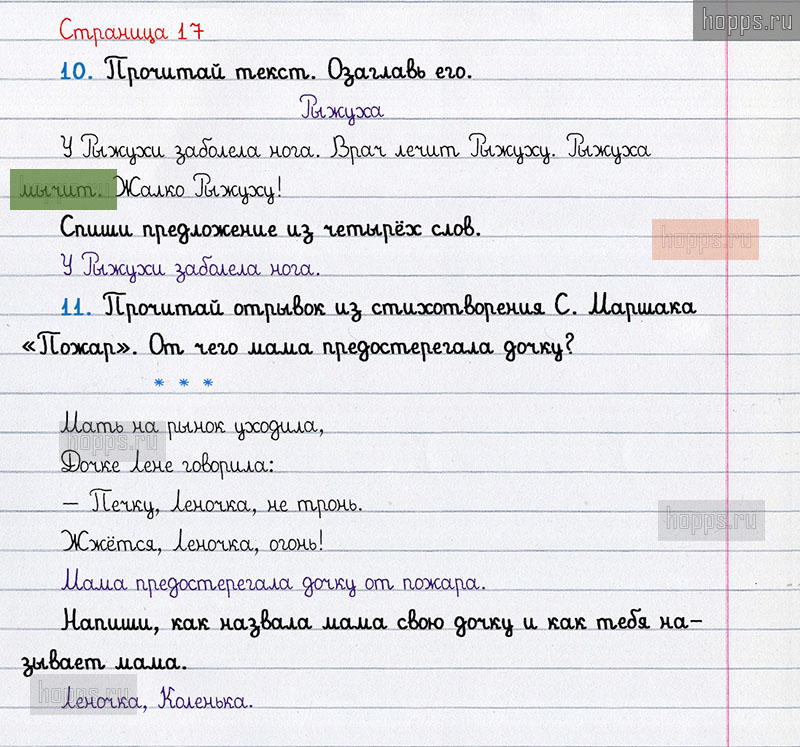 hopps.ru
Страница 17
10. Прочитай текст. Озаглавь его.
Рыжуха
У Рыжухи заболела нога. Врач лечит Рыжуху. Рыжуха
мычит. Жалко Рыжуху!
Спиши предложение из четырёх слов.
hopps.ru
У Рыжухи заболела нога.
11. Прочитай отрывок из стихотворения С. Маршака
«Пожар». От чего мама предостерегала дочку?
* * *
Мать на рынок уходила,
hopps.ru
Дочке Лене говорила:
– Печку, Леночка, не тронь.
hopps.ru
Жжётся, Леночка, огонь!
Мама предостерегала дочку от пожара.
Напиши, как назвала мама свою дочку и как тебя на-
зывает мама.
hopps.ru
Леночка, Коленька.